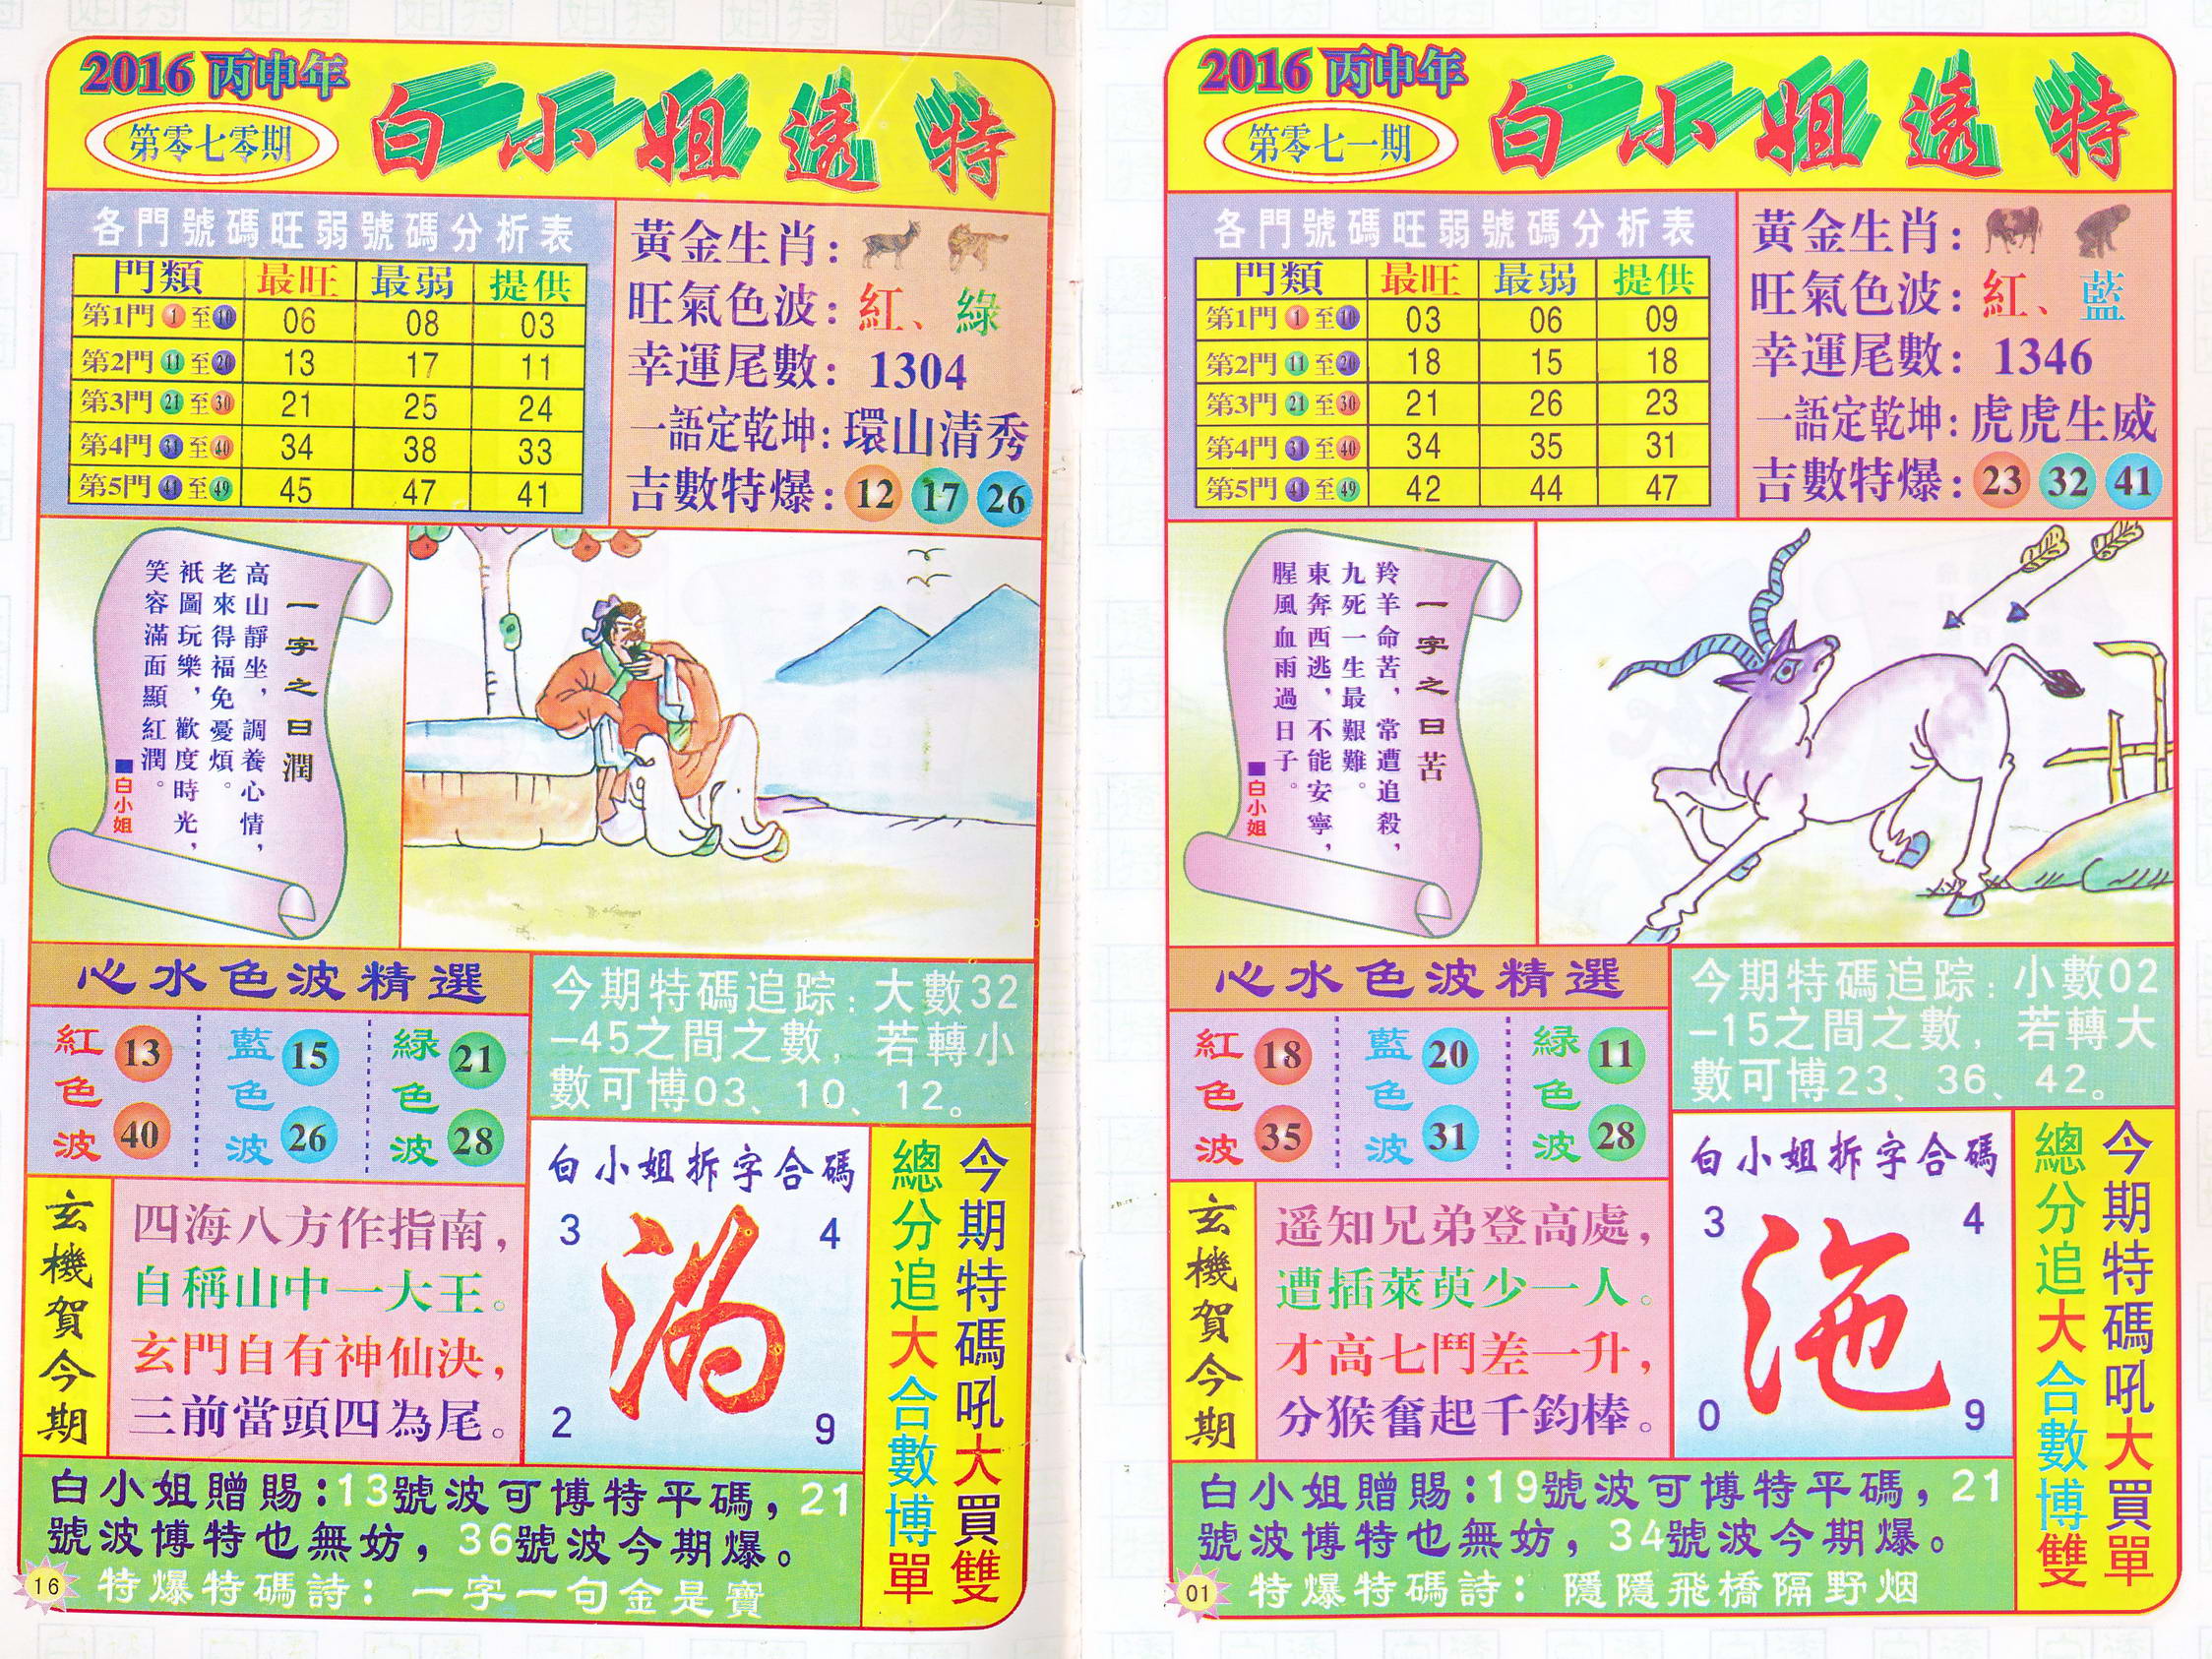 2016 丙申年
第零七零期
白小姐透特
各門號碼旺弱號碼分析表
門類 最旺 最弱 提供
第1門 1 至 10 06 08 03
第2門 11 至 20 13 17 11
第3門 21 至 30 21 25 24
第4門 31 至 40 34 38 33
第5門 41 至 49 45 47 41
黃金生肖：
旺氣色波：紅、綠
幸運尾數：1304
一語定乾坤：環山清秀
吉數特爆：12 17 26
一字之曰潤
高山靜坐，調養心情，
老來得福免憂煩。
祇圖玩樂，歡度時光，
笑容滿面顯紅潤。
■白小姐
心水色波精選
紅色波 13 40
藍色波 15 26
綠色波 21 28
今期特碼追踪：大數32
-45之間之數，若轉小
數可博03、10、12。
玄機賀今期
四海八方作指南，
自稱山中一大王。
玄門自有神仙決，
三前當頭四為尾。
白小姐拆字合碼
3 4
2 9
今期特碼吼大買雙
總分追大合數博單
白小姐贈賜：13號波可博特平碼，21
號波博特也無妨，36號波今期爆。
特爆特碼詩：一字一句金是寶
16
2016 丙申年
第零七一期
白小姐透特
各門號碼旺弱號碼分析表
門類 最旺 最弱 提供
第1門 1 至 10 03 06 09
第2門 11 至 20 18 15 18
第3門 21 至 30 21 26 23
第4門 31 至 40 34 35 31
第5門 41 至 49 42 44 47
黃金生肖：
旺氣色波：紅、藍
幸運尾數：1346
一語定乾坤：虎虎生威
吉數特爆：23 32 41
一字之曰苦
羚羊命苦，常遭追殺，
九死一生最艱難。
東奔西逃，不能安寧，
腥風血雨過日子。
■白小姐
心水色波精選
紅色波 18 35
藍色波 20 31
綠色波 11 28
今期特碼追踪：小數02
-15之間之數，若轉大
數可博23、36、42。
玄機賀今期
遥知兄弟登高處，
遭插萊萸少一人。
才高七鬥差一升，
分猴奮起千鈞棒。
白小姐拆字合碼
3 4
沲
0 9
今期特碼吼大買單
總分追大合數博雙
白小姐贈賜：19號波可博特平碼，21
號波博特也無妨，34號波今期爆。
特爆特碼詩：隱隱飛橋隔野烟
01